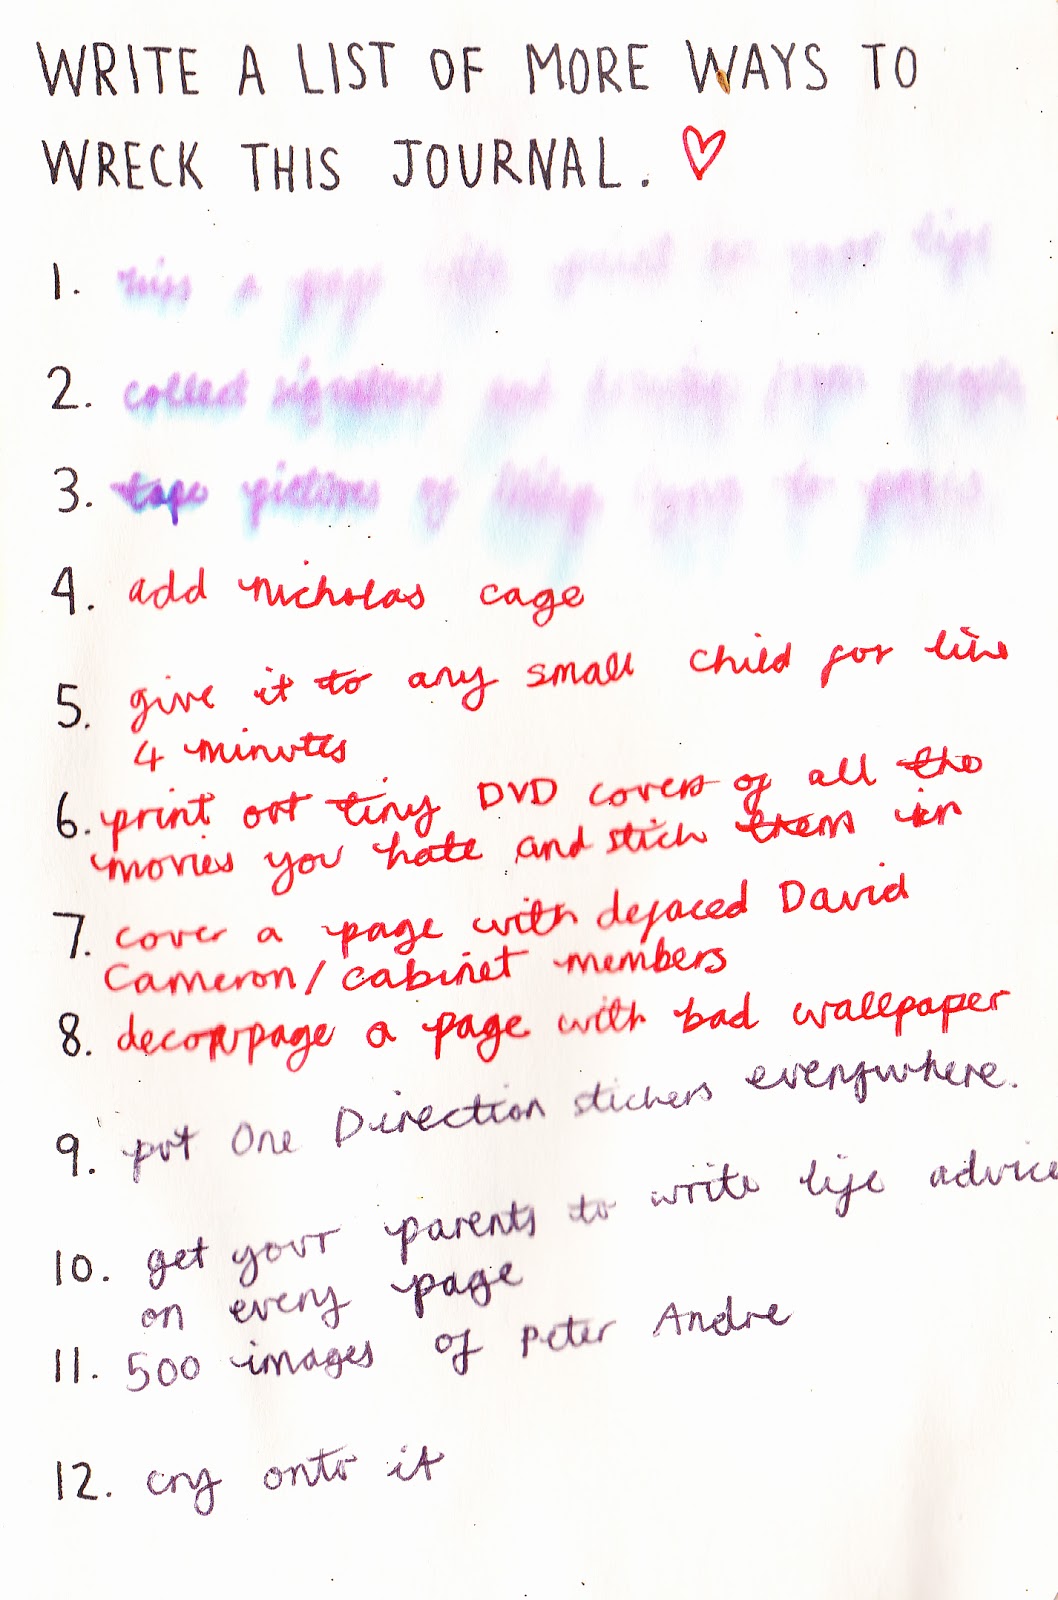 WRITE A LIST OF MORE WAYS TO
WRECK THIS JOURNAL.
1. kiss a page with paint on your lips
2. collect signatures and drawings from people
3. tape pictures of to pages
4. add nicholas cage
5. give it to any small child for like
4 minutes
6. print out tiny DVD covers of all the
movies you hate and stick them in
7. cover a page with defaced David
Cameron/cabinet members
8. decoupage a page with bad wallpaper
9. put One Direction stickers everywhere.
10. get your parents to write life advice
on every page
11. 500 images of Peter Andre
12. cry onto it